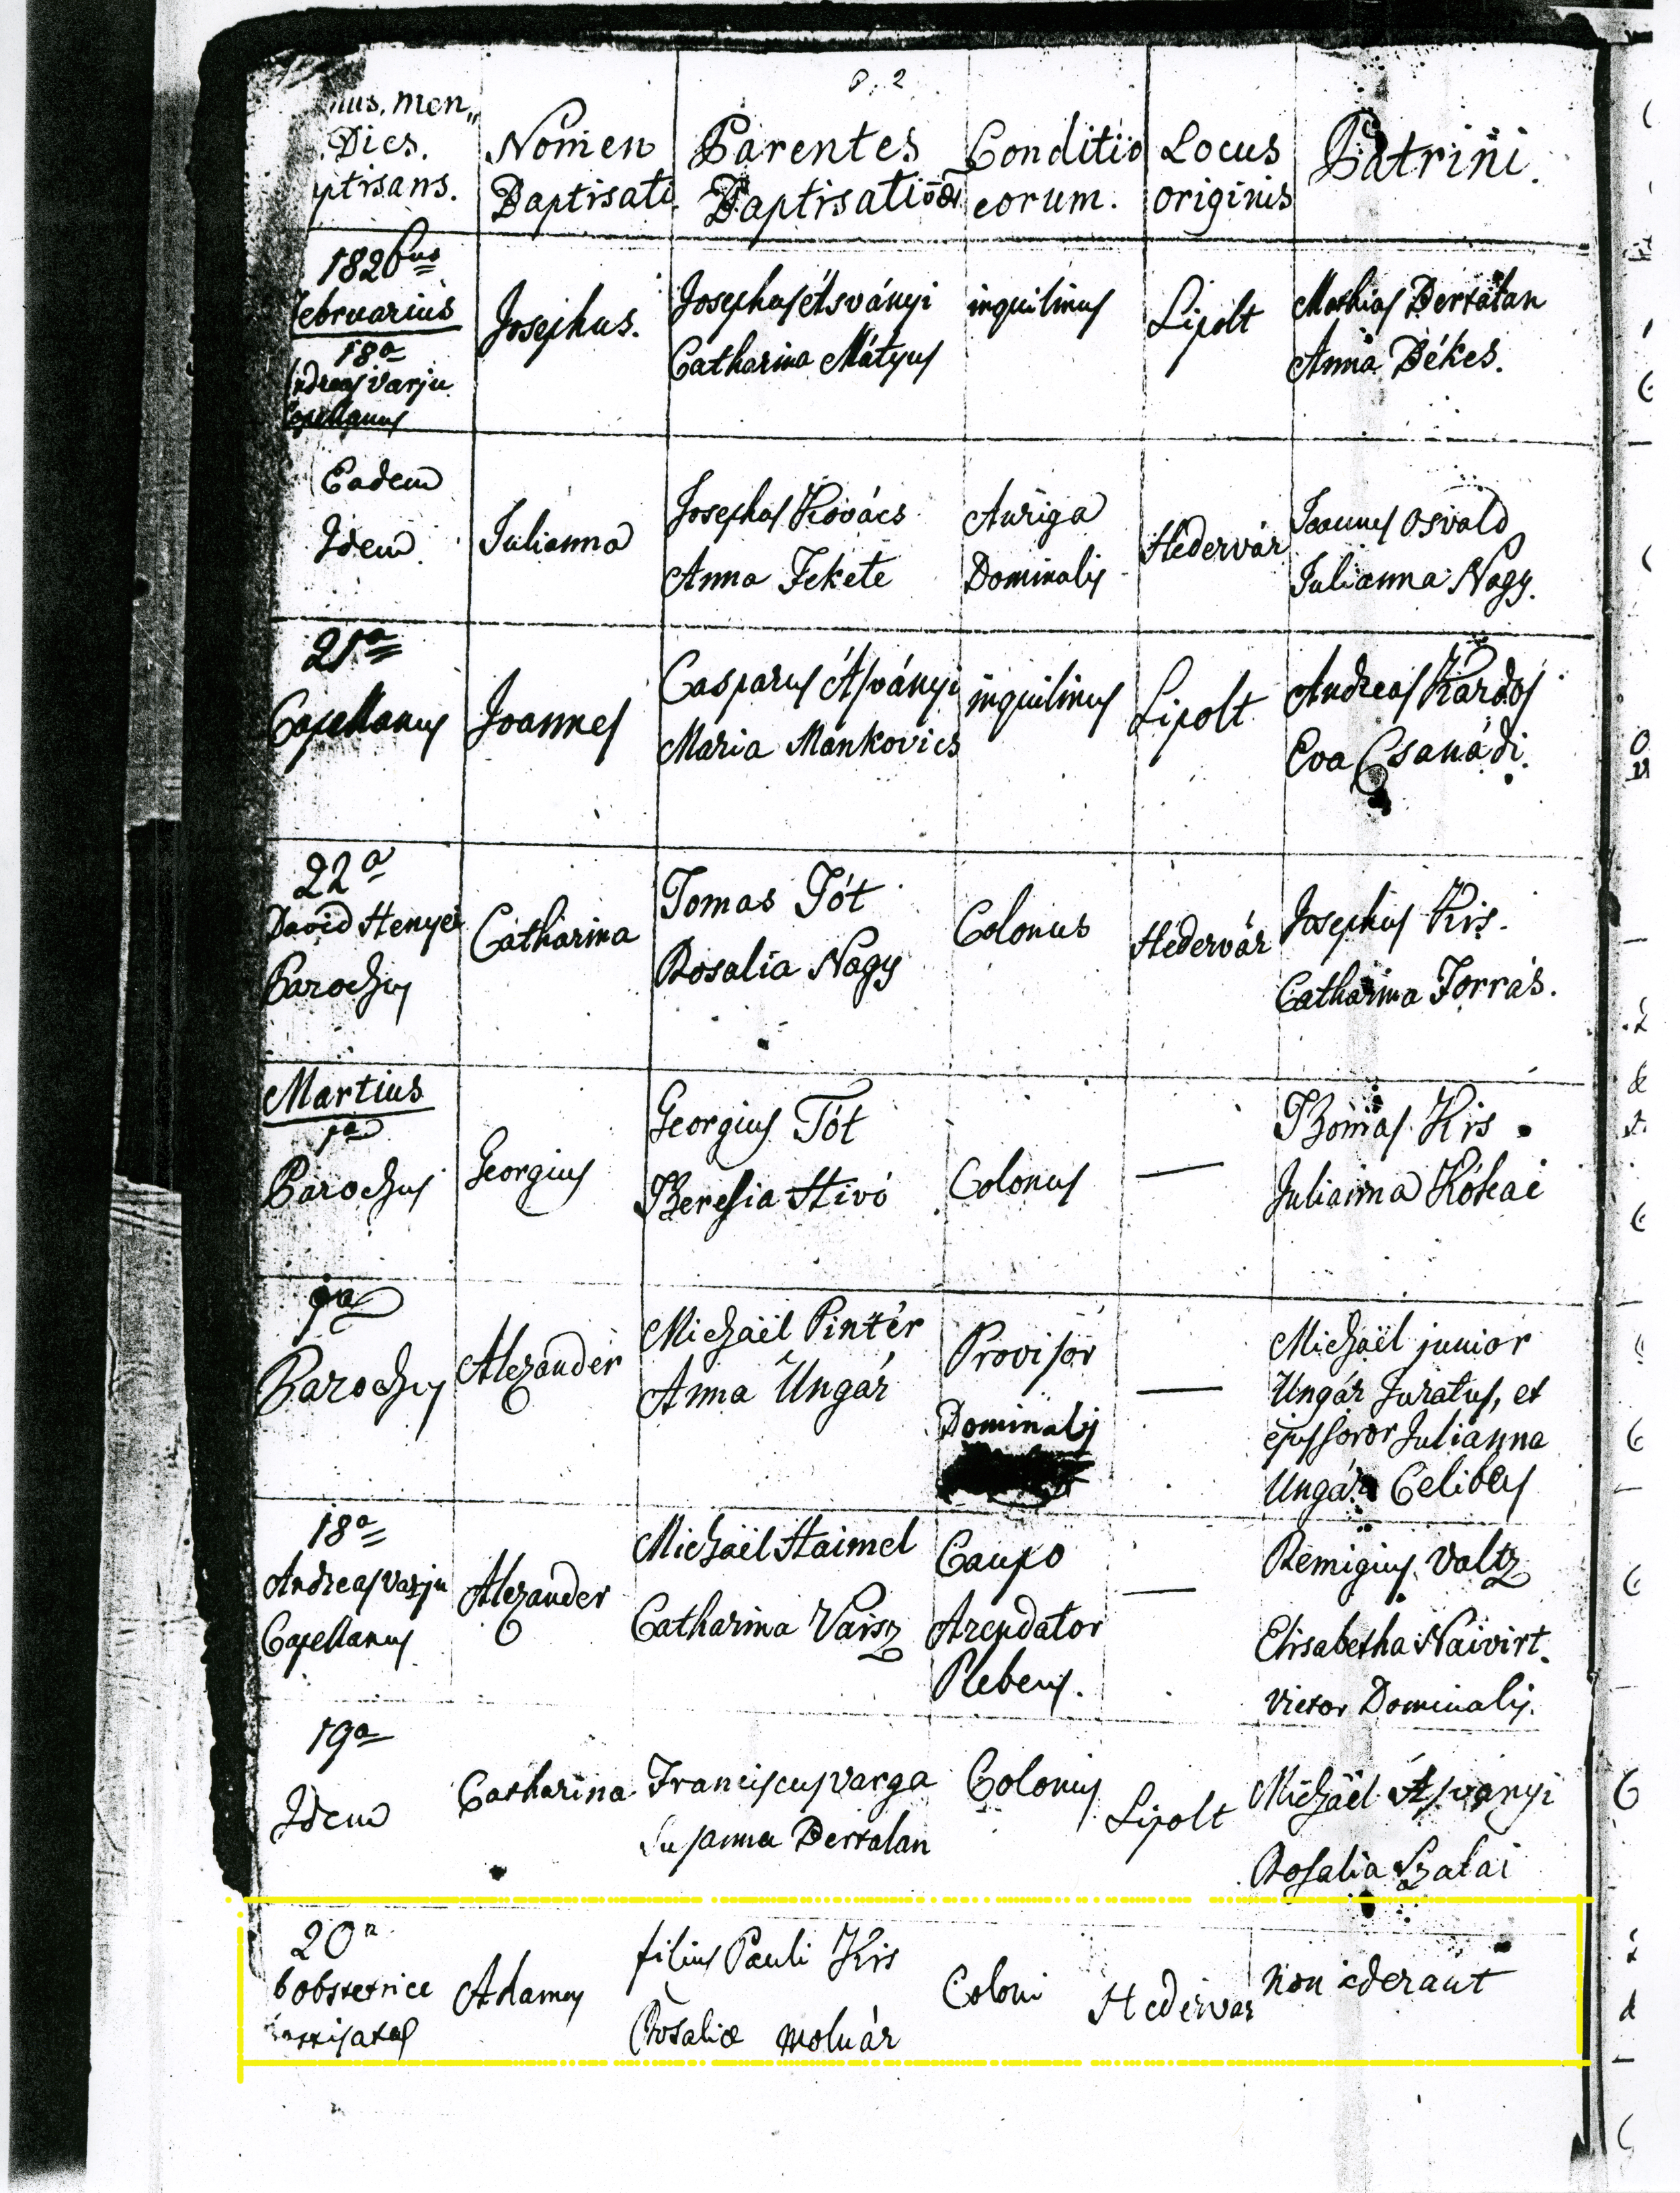 P. 2
nus. men„
Dies.
ptisans.
Nomen
Baptisati
Parentes
Baptisati
Conditio
eorum.
Locus
originis
Patrini.
1826
Februarius
18a
Andreas Varju
Capellanus
Josephus.
Josephus Ásványi
Catharina Mátyus
inquilinus
Lipolt
Mathias Bertalan
Anna Békes.
Eadem
Idem
Julianna
Josephus Kovács
Anna Fekete
Auriga
Dominalis
Hédervár
Joannes Osvald
Julianna Nagy.
21a
Capellanus
Joannes
Casparus Ásványi
Maria Mankovics
inquilinus
Lipolt
Andreas Kardos
Eva Csanádi.
22a
David Henyei
Parochus
Catharina
Tomas Tót
Rosalia Nagy
Colonus
Hedervár
Josephus Kis.
Catharina Forrás.
Martius
1a
Parochus
Georgius
Georgius Tót
Theresia Hivó
Colonus
—
Thomas Kis
Julianna
9a
Parochus
Alexander
Michaël Pintér
Anna Ungár
Provisor
Dominalis
—
Michaël junior
Ungár Juratus, et
ejus soror Julianna
Ungár Celibes
18a
Andreas Varju
Capellanus
Alexander
Michaël Haimel
Catharina Vaisz
Caupo
Arendator
Plebeus.
—
Remigius Valtz
Elisabetha Naivirt.
Victor Dominalis.
19a
Idem
Catharina
Franciscus Varga
Susanna Bertalan
Colonus
Lipolt
Michaël Ásványi
Rosalia Szalai
20a
obstetrice
Adamus
filius Pauli Kis
Rosaliæ Molnár
Coloni
Hedervar
non aderant